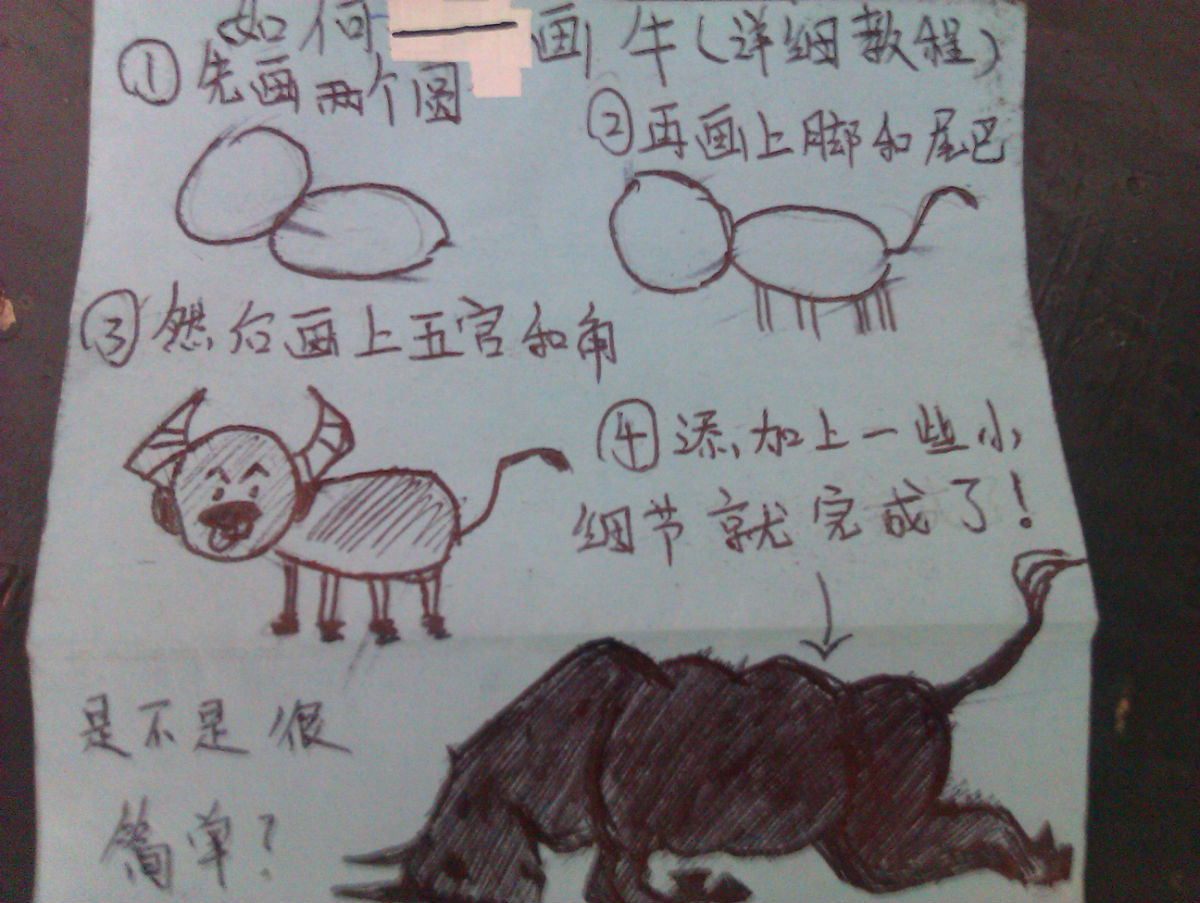 如何 画牛(详细教程)
①先画两个圆
②再画上脚和尾巴
③然后画上五官和角
④添加上一些小
细节就完成了!
是不是很
简单?